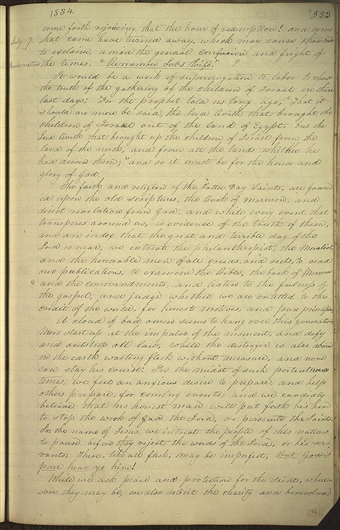 1834.
523
come forth rejoicing that the hour of redemption! and many
July 7. that came have turned away, which may cause thousands
to exclaim, amid the general confusion and fright of
the times: "Remember Lot's Wife."
It would be a work of supererogation to labor to show
the truth of the gathering of the children of Israel in these
last days: For the prophet told us long ago, "That it
should no more be said, the Lord liveth that brought the
children of Israel out of the land of Egypt, but the
Lord liveth that brought up the children of Israel from the
land of the north, and from all the lands whither he
had driven them;" and so it must be for the honor and
glory of God.
The faith and religion of the Latter Day Saints, are found-
ed upon the old scriptures, the Book of Mormon, and
direct revelations from God, and while every event that
transpires around us, is evidence of the truth of them,
and an index that the great and terrible day of the
Lord is near, we intreat the philanthropist, the Moralist
and the honorable men of all creeds, and sects, to read
our publications, to examine the Bible, the book of Mormon
and the commandments, and listen to the fulness of
the gospel, and judge whether we are entitled to the
credit of the world, for honest motives and pure principles.
A cloud of bad omens seems to hang over this generation
Men start up at the impulse of the moment, and defy
and outstrip all law, while the destroyer is also abroad
in the earth wasting flesh without measure, and none
can stay his course! In the midst of such portentous
times, we feel an anxious desire to prepare, and help
others prepare, for coming events; and we candidly
believe that no honest man will put forth his hand
to stop the work of the Lord, or persecute the Saints.
In the name of Jesus we intreat the people of this nation
to pause before they reject the words of the Lord, or his ser-
vants: These, like all flesh, may be imperfect, but God is
pure hear ye him!
While we ask peace and protection for the Saints, where-
ever they may be, we also solicit the charity and benevolence